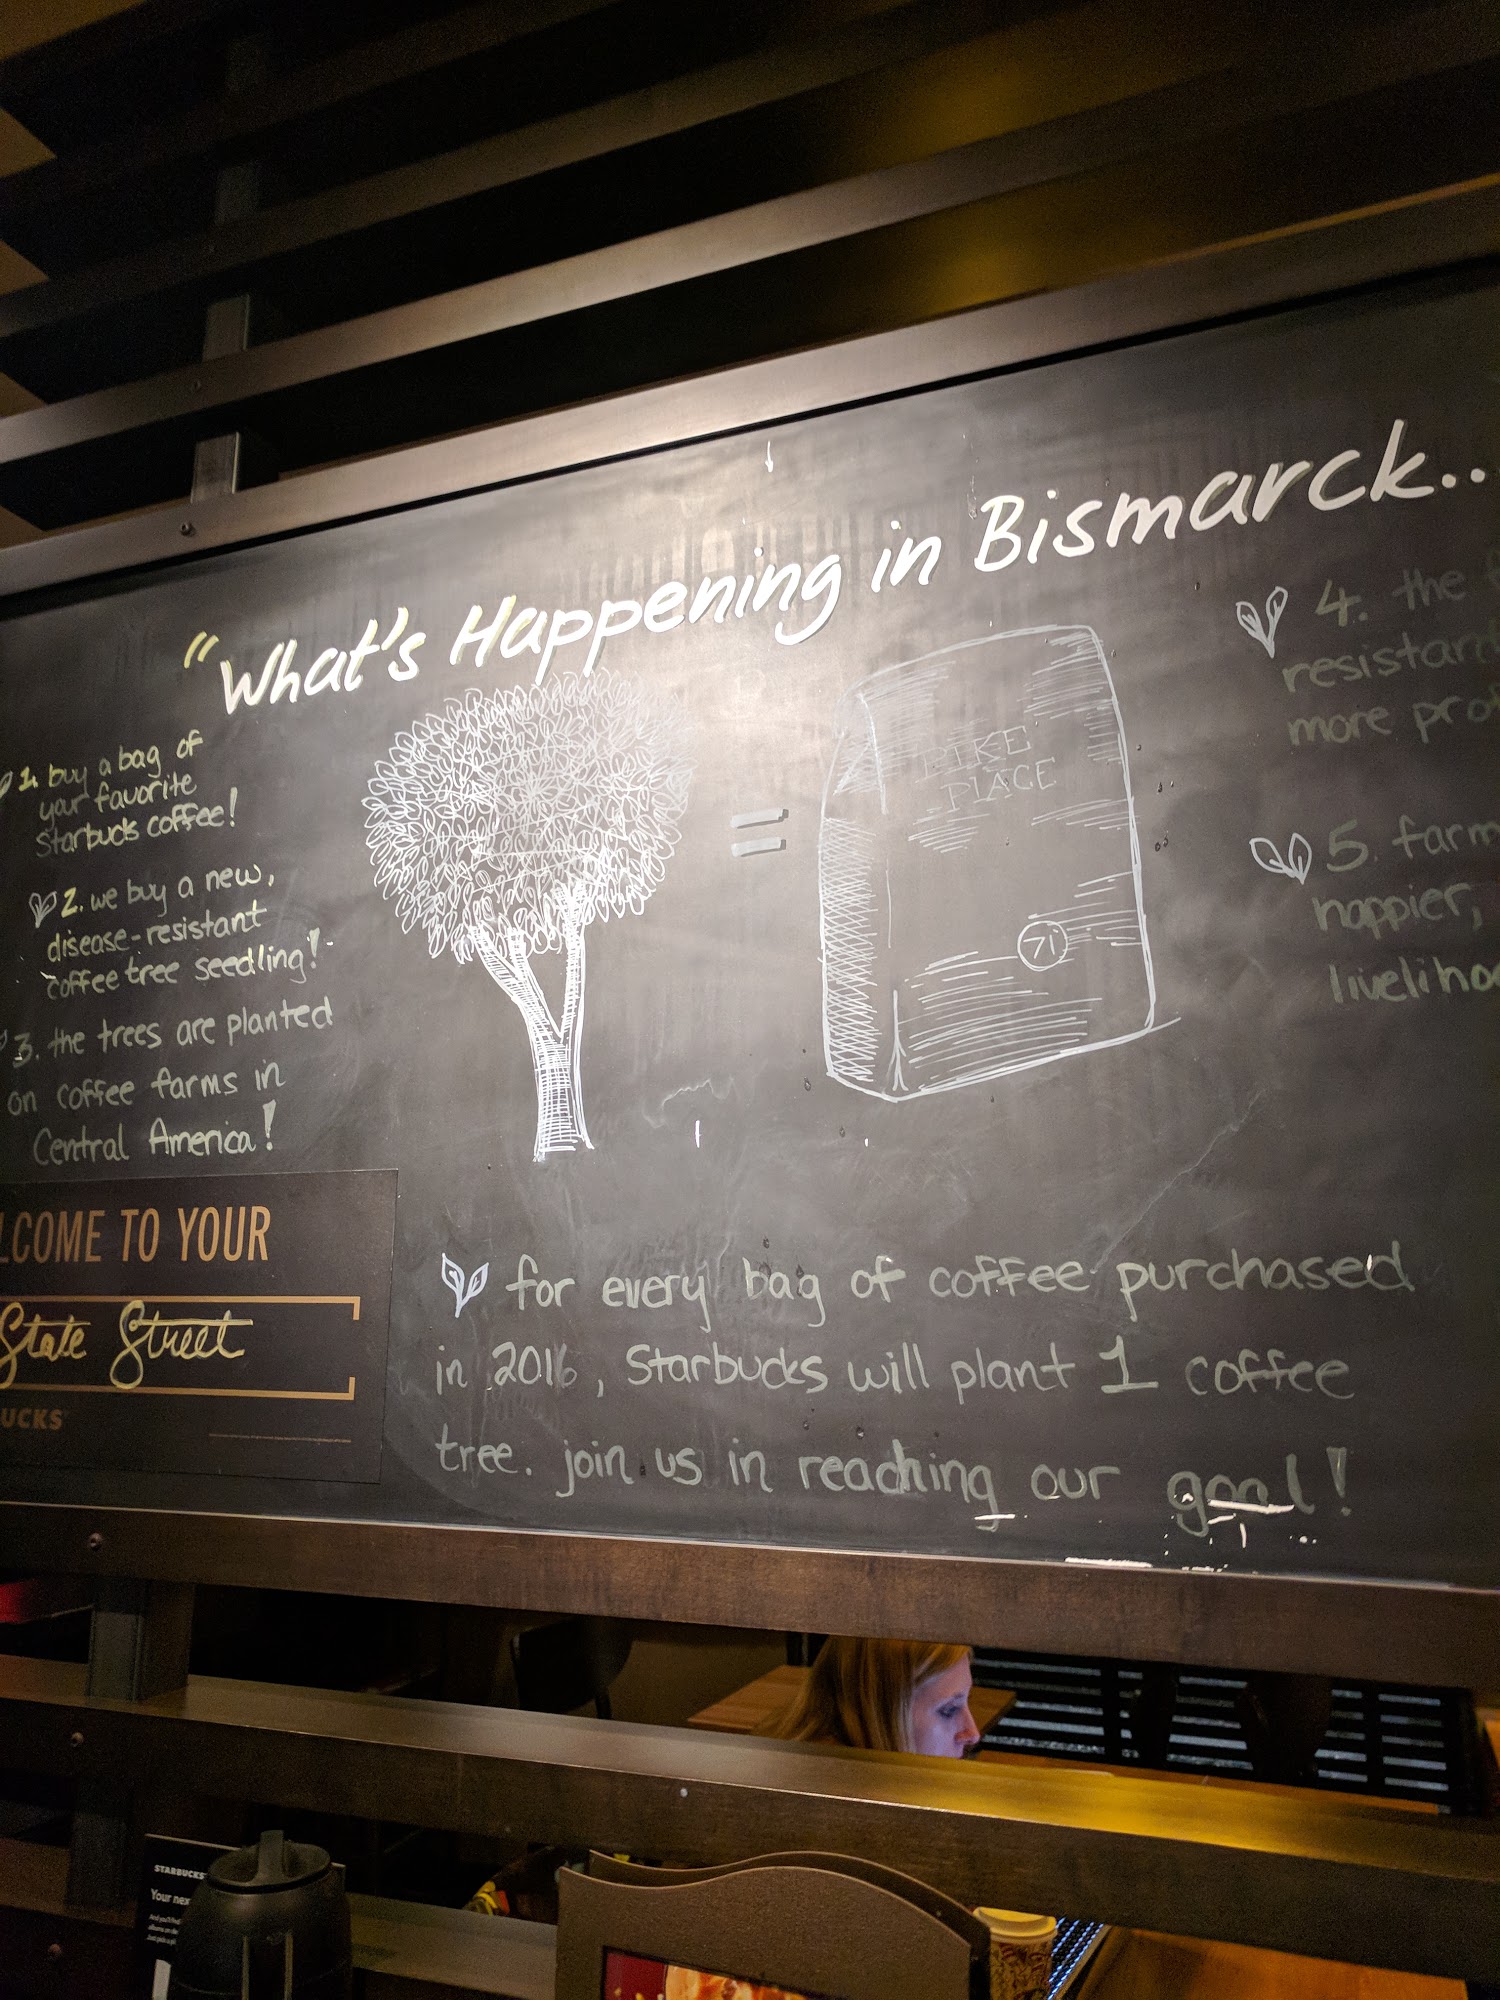 "What's Happening in Bismarck..
1. buy a bag of
your favorite
Starbucks coffee!
2. we buy a new,
disease-resistant
coffee tree seedling!
3. the trees are planted
on coffee farms in
Central America!
=
PIKE
PLACE
71
4. the
resistant
more
5.
happier,
for every bag of coffee purchased
in 2016, Starbucks will plant 1 coffee
tree. join us in reaching our goal!
TO YOUR
State Street
STARBUCKS
Your